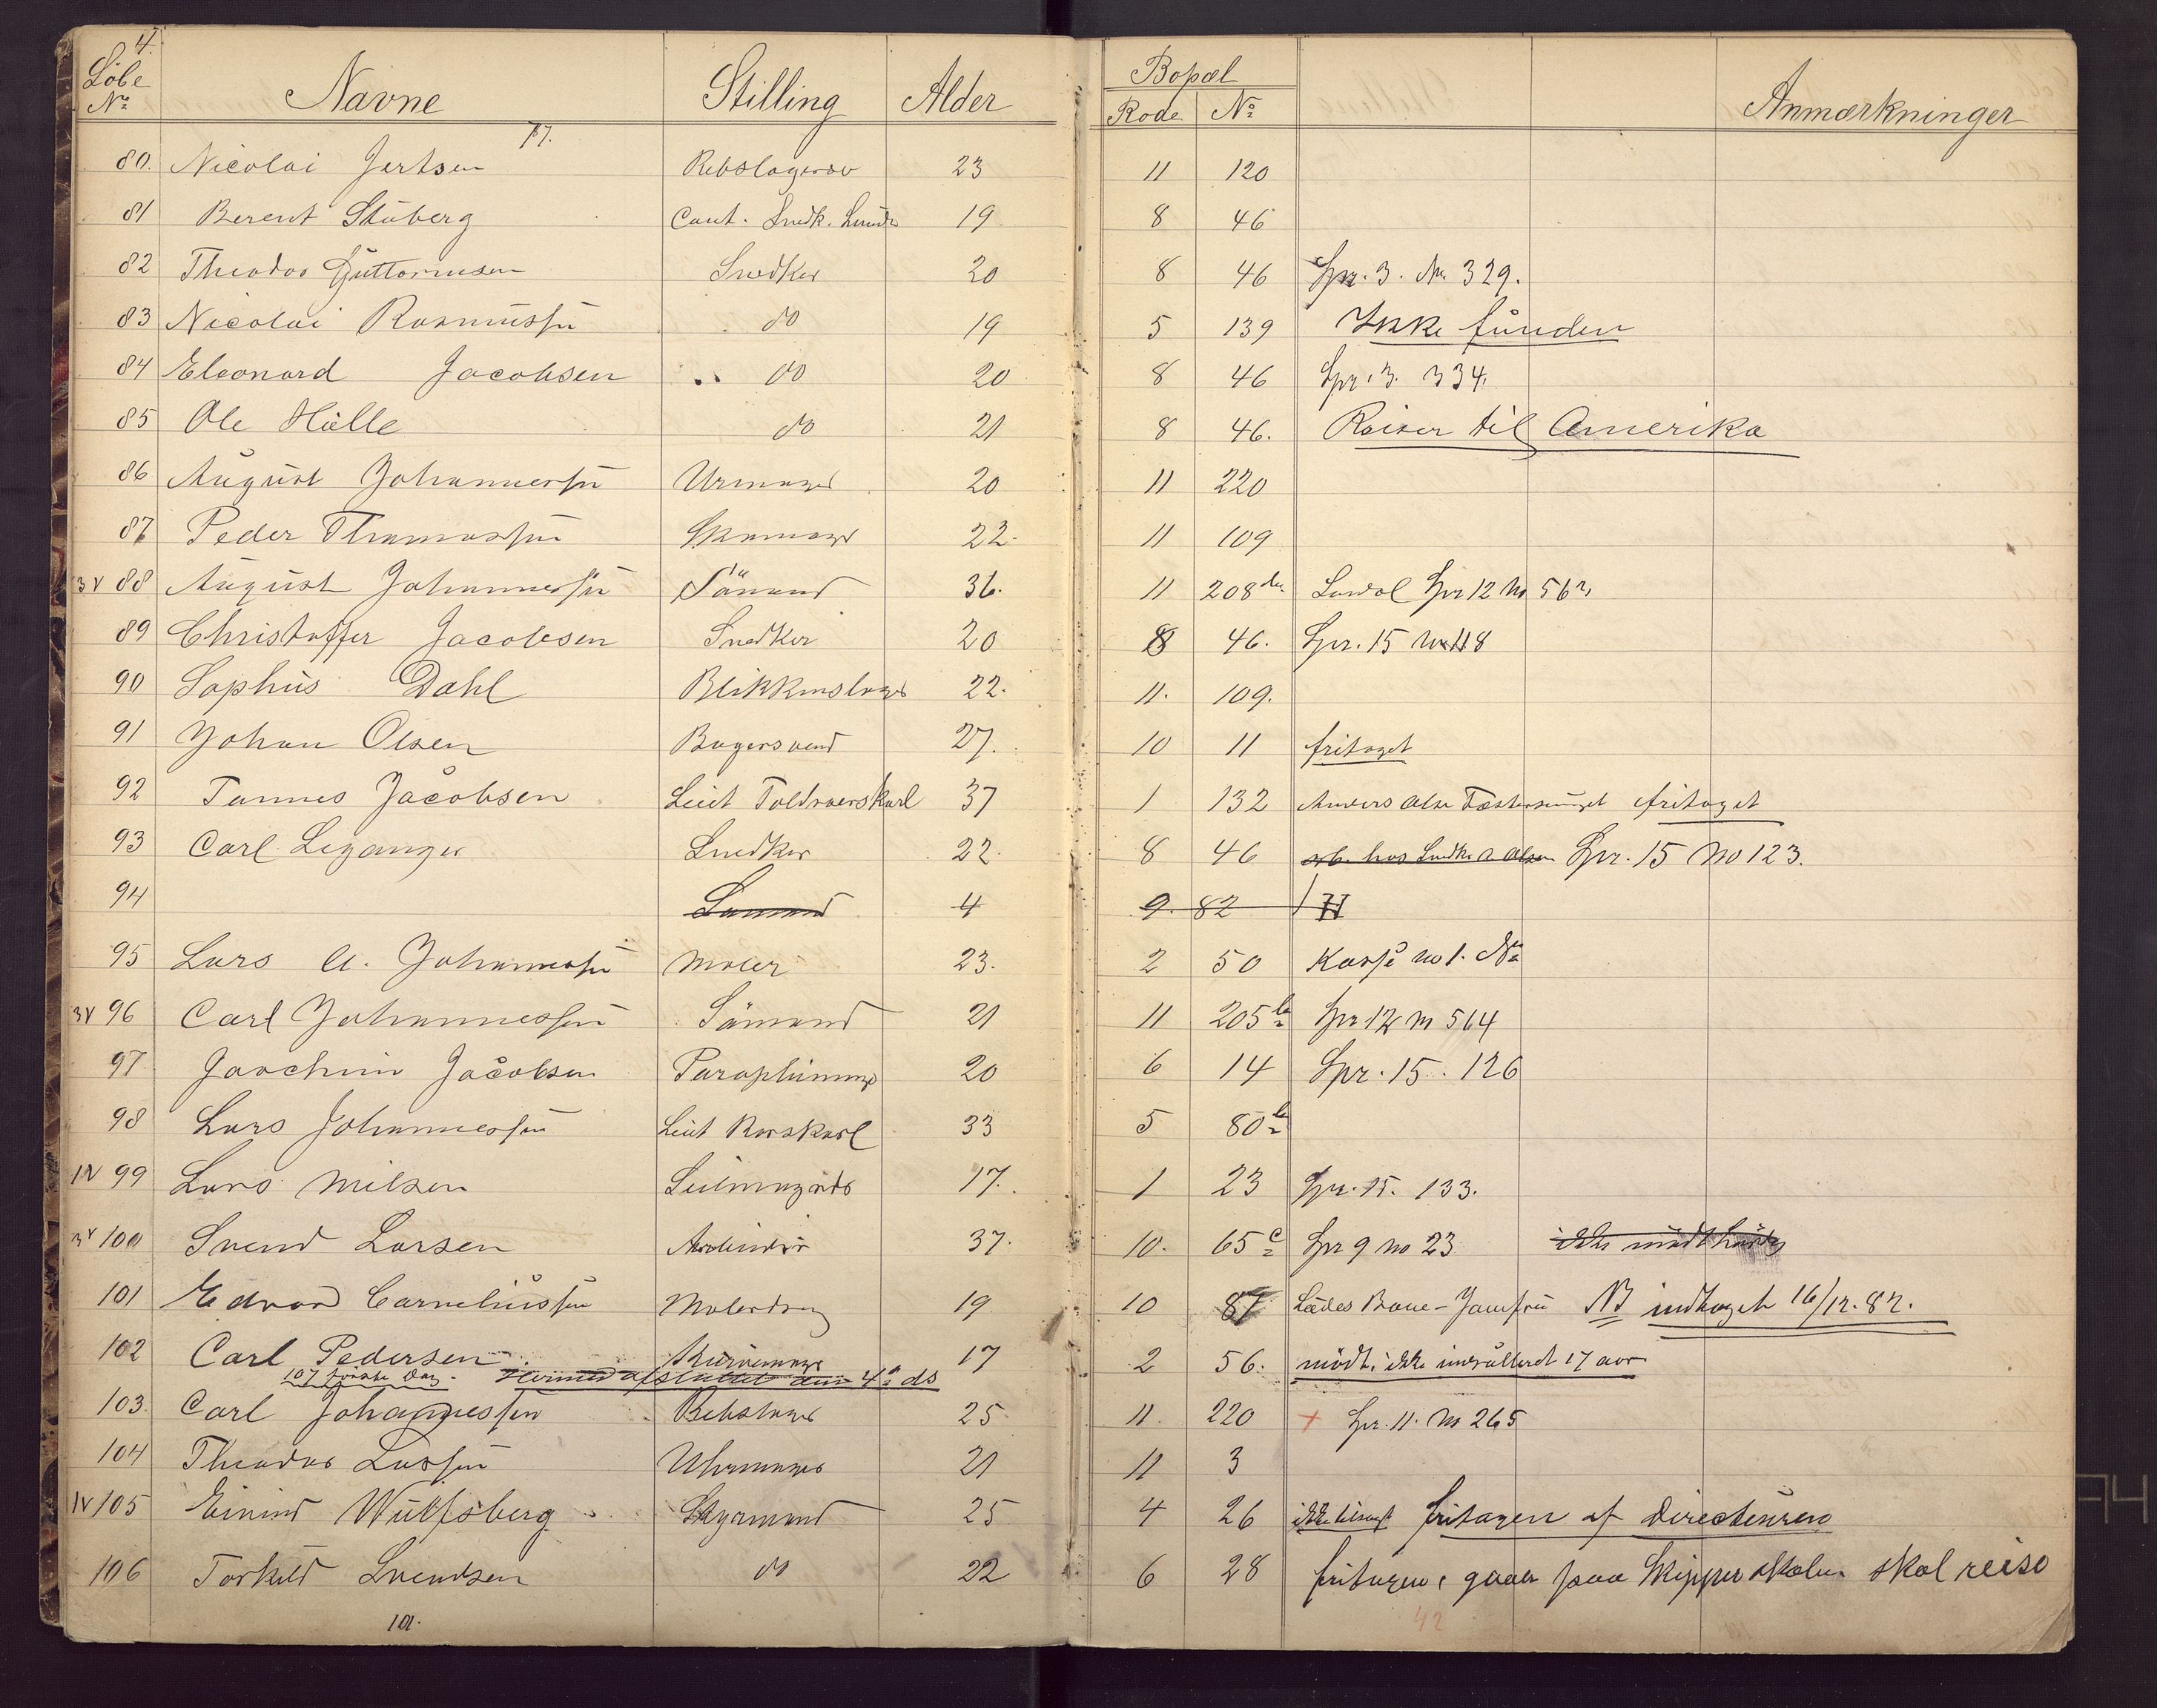 4.
Löbe No Navne Stilling Alder Bopæl Rode No Anmærkninger
77.
80. Nicolai Jertsen Rebslagersv 23 11 120
81 Berent Stüberg Cont. Snedk. Lunde 19 8 46
82 Theodor Guttormsen Snedker 20 8 46 Spr. 3. No 329.
83 Nicolai Rasmussen do 19 5 139 Ikke funden
84 Eleonard Jacobsen do 20 8 46 Spr. 3. 334.
85 Ole Hille do 21 8 46. Reiser til Amerika
86 August Johannessen Urmager 20 11 220
87 Peder Thomassen Skomager 22. 11 109
3V 88 August Johannessen Sömand 36. 11 208 Spr 12 No 562
89 Christoffer Jacobsen Snedker 20 8 46. Spr. 15 No 118
90 Sophus Dahl Blikkenslager 22. 11. 109.
91 Johan Olsen Bagersvend 27. 10 11 fritaget
92 Tønnes Jacobsen Leiet Toldroerskarl 37 1 132 Anders Olsen fritaget
93 Carl Leganger Snedker 22. 8 46 arb. hos Snedker A Olsen Spr. 15 No 123.
94 Sømand 4 9. 82
95 Lars A. Johannessen Maler 23. 2 50 Kasse no 1.
3V 96 Carl Johannessen Sömand 21 11 205 b Spr 12 No 564
97 Joachim Jacobsen Paraplümag 20 6 14 Spr. 15. 126
98 Lars Johannessen Leiet Rorskarl 33 5 80 b
IV 99 Lars Nilsen Seilmagerds 17. 1 23 Spr. 15. 133.
3V 100 Svend Larsen Arbeider 37. 10. 65 c Spr 9 no 23 ikke mödt
101 Edvard Corneliussen Malerdreng 19 10 87 NB indtaget 16/12. 82.
102 Carl Pedersen Kurvemager 17 2 56. mödt, ikke indrulleret 17 aar
107 første Dag. Hermed afsluttet den 4de ds
103 Carl Johannessen Rebslager 25 11. 220 + Spr. 11. No 265
104 Theodor Larsen Uhrmager 21 11 3
IV 105 Einind Wulfsberg Styrmand 25 4 26 ikke tilsagt fritagen af Directeuren
106 Torkild Svendsen do 22 6 28 fritagen, gaaer paa Skipperskolen skal reise
101. 42